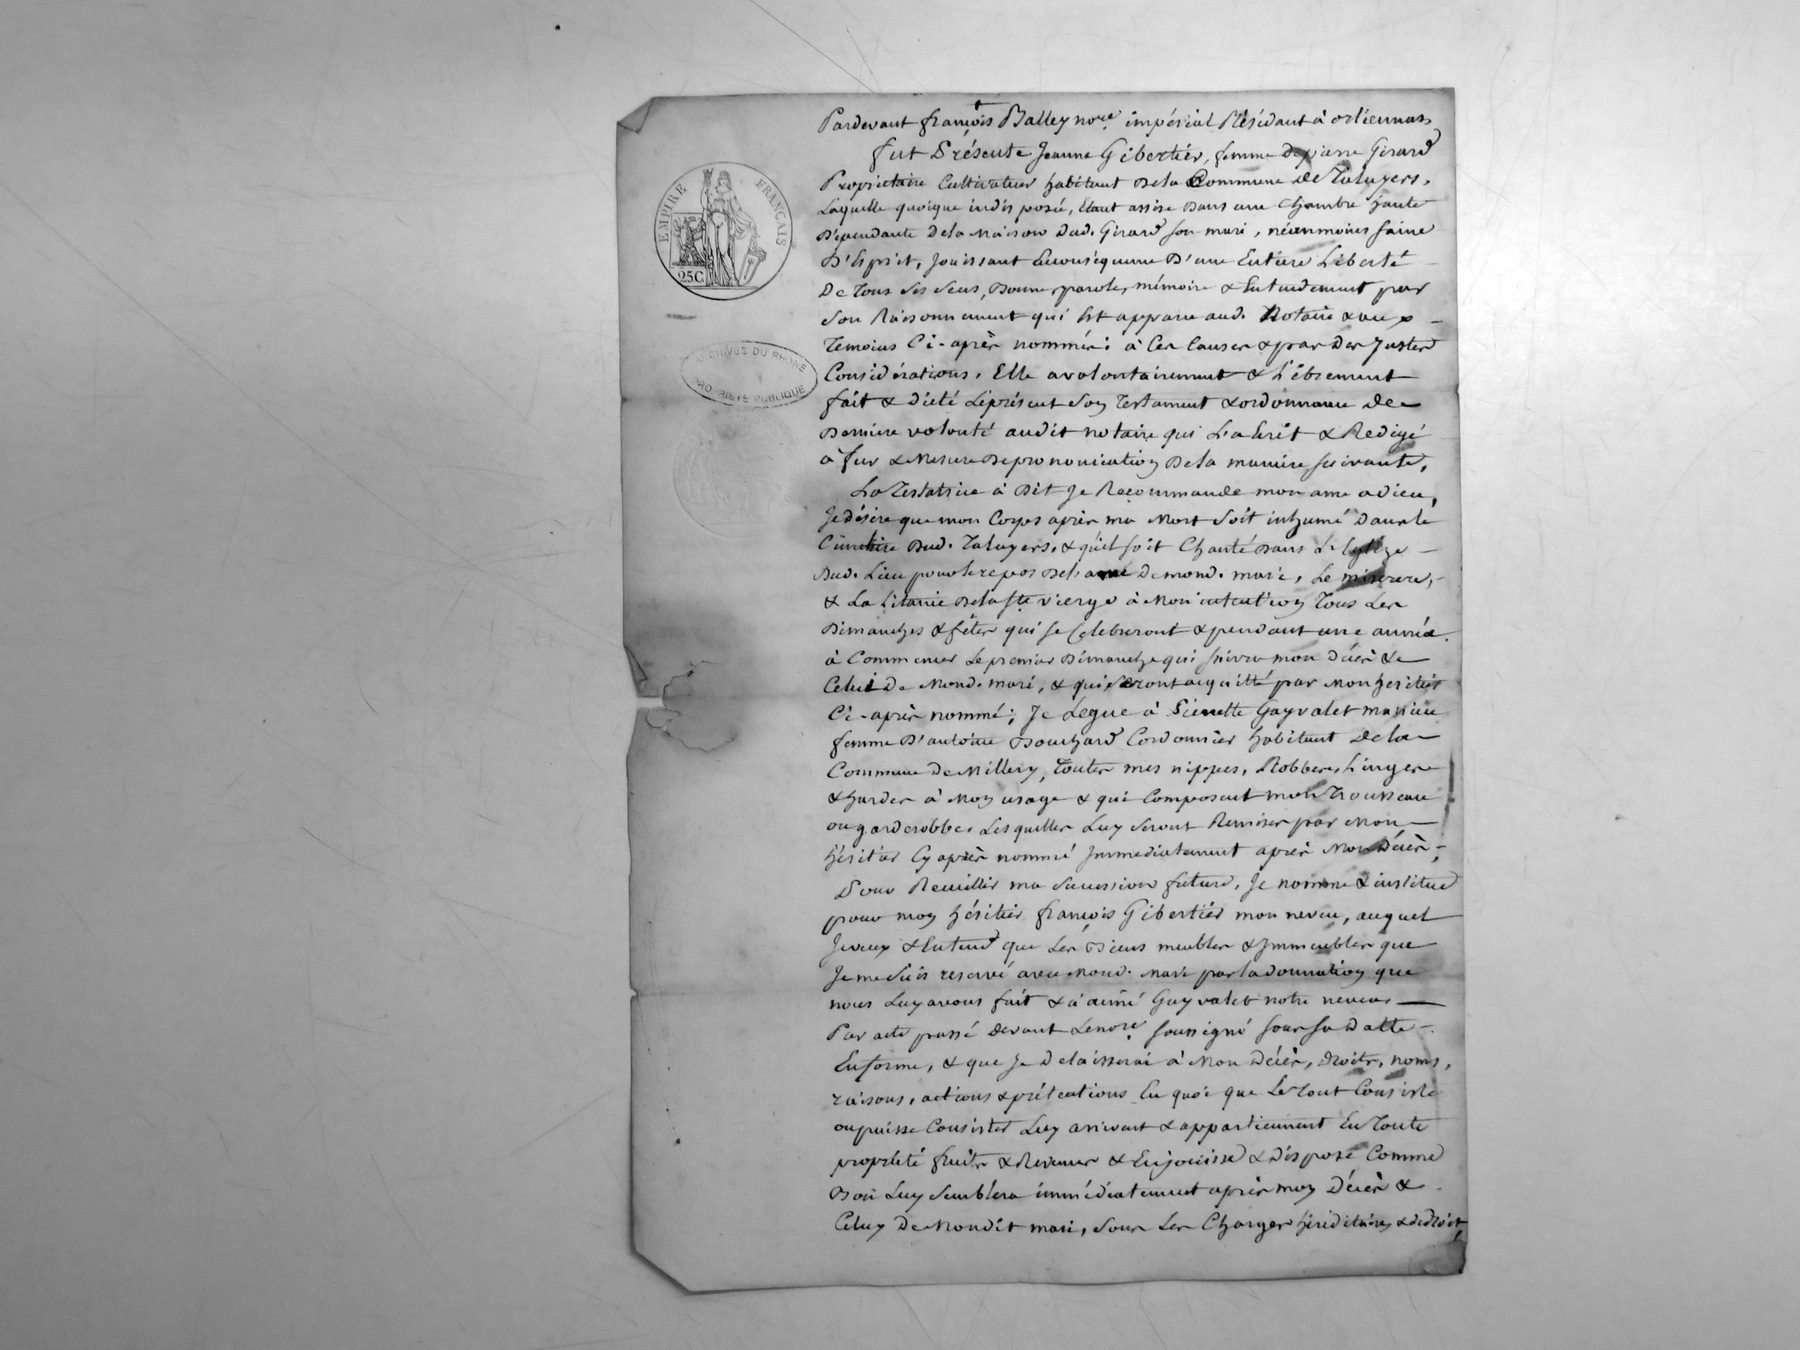 EMPIRE FRANÇAIS
25C
ARCHIVES DU RHONE
PROPRIETE PUBLIQUE
Pardevant françois Balley nore. impérial Résidant à orliennas
fut Présente Jeanne Gibertier, femme de pierre Girard
Propriétaire Cultivateur habitant De la Commune de Taluyers,
Laquelle quoique indisposée, Etant assise dans une Chambre haute
Dépendante De la Maison dud. Girard son mari, néenmoins saine
D'Esprit, Jouissant En conséquence D'une Entière Liberté
De Tous ses sens, Bonne parole, mémoire & Entendement par
son Raisonnement qui Est apparu aud. Notaire & aux
Temoins Ci-après nommés: à Ces Causes & par Des Justes
Considérations, Elle a volontairement & Librement
fait & dicté Le présent Son Testament & ordonnance De
Derniere volonté audit notaire qui L'a Ecrit & Redigé
à fur & Mesure De prononciation De la maniere suivante,
La Testatrice à Dit Je Recommande mon ame a dieu,
Je désire que mon Corps après ma Mort soit inhumé dans le
Cimetiere Dud. Taluyers, & qu'il soit Chanté Dans L'Eglize
Dud. Lieu pour le repos De l'ame De mond. mari, Le miserere,
& La Litanie De la Ste vierge à Mon intention Tous Les
Dimanches & fêtes qui se Celebreront & pendant une année
à Commencer Le premier Dimanche qui suivra mon Décès &
Celui De Mond. mari, & qui seront acquitté par Mon héritier
Ci-après nommé; Je Legue à Pierrette Gayvalet ma niece
femme D'antoine Bouchard Cordonnier habitant De la
Commune De Millery, Toutes mes nippes, Robbes, Linges
& hardes à Mon usage & qui Composent mon Trousseau
ou garderobbe, Lesquelles Luy seront Remises par Mon
héritier Cy après nommé Immediatement après Mon Décès;
Pour Recuillir ma Sucession future, Je nomme & institue
pour mon héritier françois Gibertier mon neveu, auquel
Je veux & Entend que Les Biens meubles & Immeubles que
Je me suis reservé avec Mond. Mari par la donnation que
nous Luy avons fait & à aimé Gayvalet notre neveu,
Par acte passé devant Le nore. soussigné sous sa Datte
En forme, & que Je Delaisserai à Mon Décès, droits, noms,
raisons, actions & prétentions En quoi que Le Tout Consiste
ou puisse Consister Luy arrivent & appartiennent En Toute
propriété fruits & Revenus & En jouisse & Dispose Comme
Bon Luy Semblera immédiatement après mon Décès &
Celuy De Mondit mari, sous Les Charges héréditaires & de Droit,